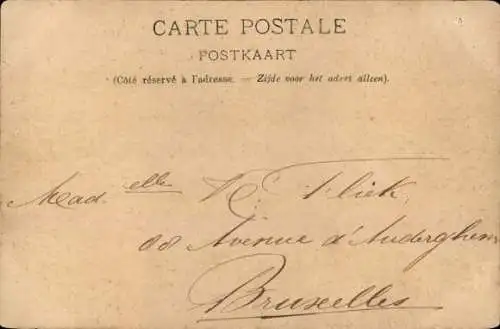 CARTE POSTALE
POSTKAART
(Côté réservé à l'adresse. — Zijde voor het adres alleen).
Mad elle Flick
68 Avenue d'Auderghem
Bruxelles